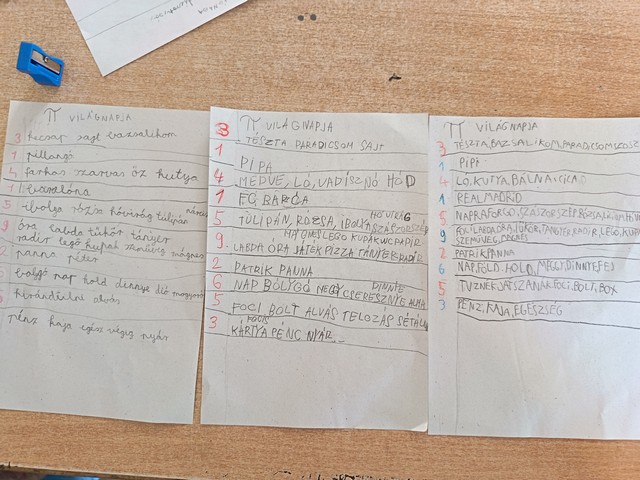 π VILÁGNAPJA
3 kecsap sajt bazsalikom
1 pillangó
4 farkas szarvas őz kutya
1 barcelóna
5 ibolya rózsa hóvirág tulipán
9 óra labda tükör tányér
radír legó kupak szemüveg mágnes
2 panna péter
bolygó nap hold dinnye dió mogyoró
kirándulni alvás
pénz kaja egész végig nyár
3 π VILÁGNAPJA
TÉSZTA PARADICSOM SAJT
1 PIPA
4 MEDVE, LÓ, VADISZNÓ HÓD
1 FC BARCA
HÓVIRÁG
5 TULIPÁN, RÓZSA, IBOLYA
MÁGNES LEGO KUPAK WC PAPÍR
9 LABDA ÓRA JÁTÉK PIZZA TÁNYÉR RADÍR
2 PATRIK PANNA
DINNYE
6 NAP BOLYGÓ MEGGY CSERESZNYE ALMA
5 FOCI BOLT ALVÁS TELOZÁS SÉTÁLÁS
3 KÁRTYA PÉNC NYÁR
π VILÁGNAPJA
3 TÉSZTA, BAZSALIKOM, PARADICSOMSZÓSZ
1 PIPI
4 LÓ, KUTYA, BÁLNA, CICA
1 REAL MADRID
5 NAPRAFORGÓ, SZÁSZORSZÉP, RÓZSA
9 FOCILABDA, ÓRA, TÜKÖR, TÁNYÉR, RADÍR, LEGÓ, KUPAK
SZEMÜVEG
2 PATRIK PANNA
6 NAP, FÖLD, HOLD, MEGGY, DINNYE
5 JÁTSZANAK, FOCI, BOLT, BOX
3 PÉNZ, KAJA, EGÉSZSÉG